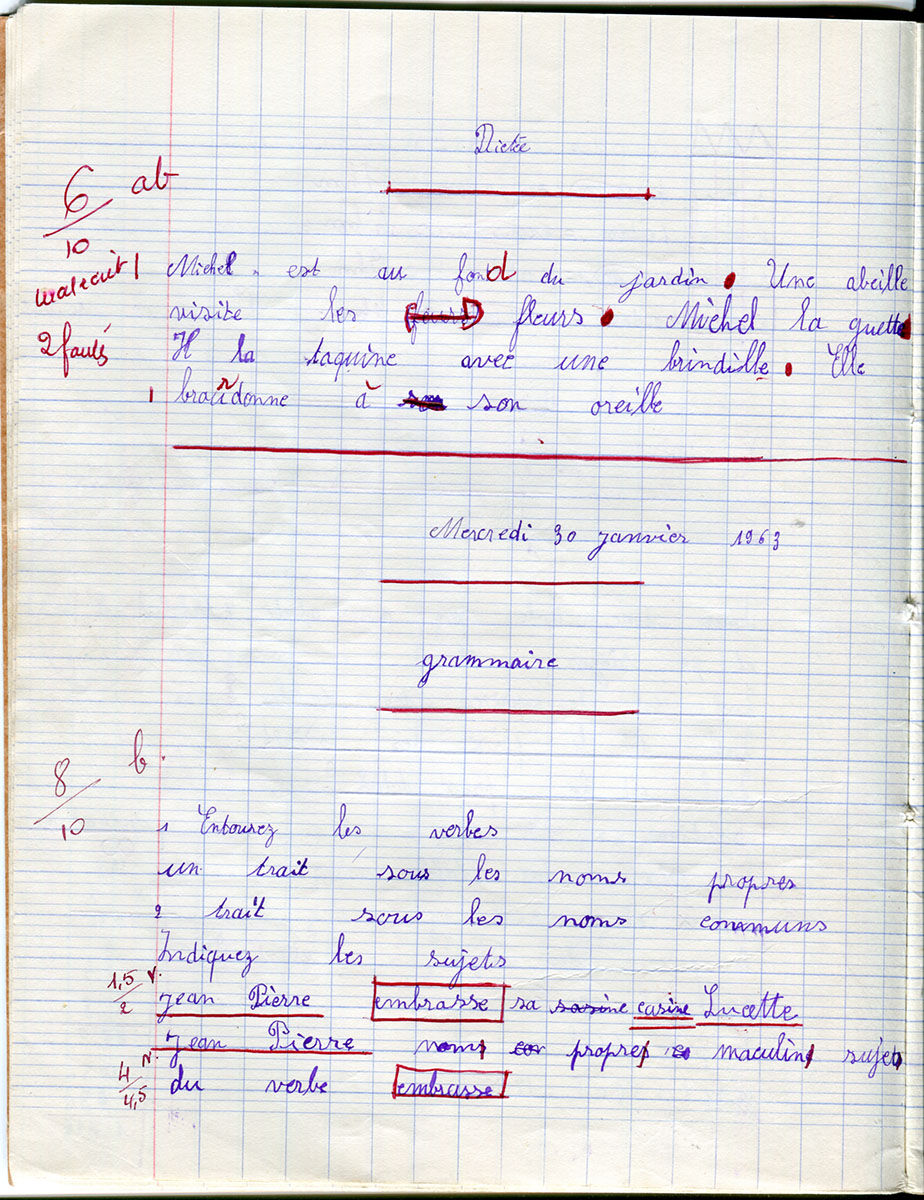 Dictée
6/10 ab
mal écrit 1 Michel est au fond du jardin. Une abeille
visite les (fleurs) fleurs. Michel la guette
2 fautes Il la taquine avec une brindille. Elle
1 bourdonne à son oreille
Mercredi 30 janvier 1963
grammaire
8/10 b.
1 Entourez les verbes
un trait sous les noms propres
2 trait sous les noms communs
Indiquez les sujets
1,5/2 v. Jean Pierre embrasse sa casine Lucette
Jean Pierre nom propre maculin sujet
4/4,5 N. du verbe embrasse